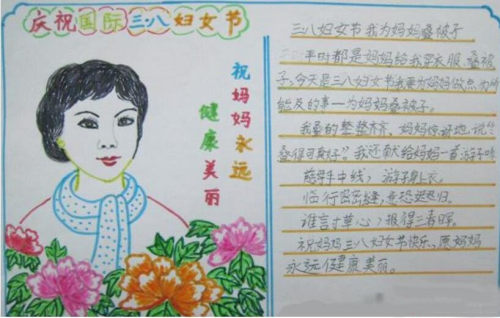 庆祝国际三八妇女节
祝妈妈永远
健康美丽
三八妇女节我为妈妈叠被子
平时都是妈妈给我穿衣服、叠被
子、今天是三八妇女节我要为妈妈做点力所
能及的事一为妈妈叠被子。
我叠的整整齐齐，妈妈惊讶地说"
叠得可真好"。我还献给妈妈一首游子吟
慈母手中线，游子身上衣。
临行密密缝，意恐迟迟归。
谁言寸草心，报得三春晖。
祝妈妈三八妇女节快乐、愿妈妈
永远健康美丽。